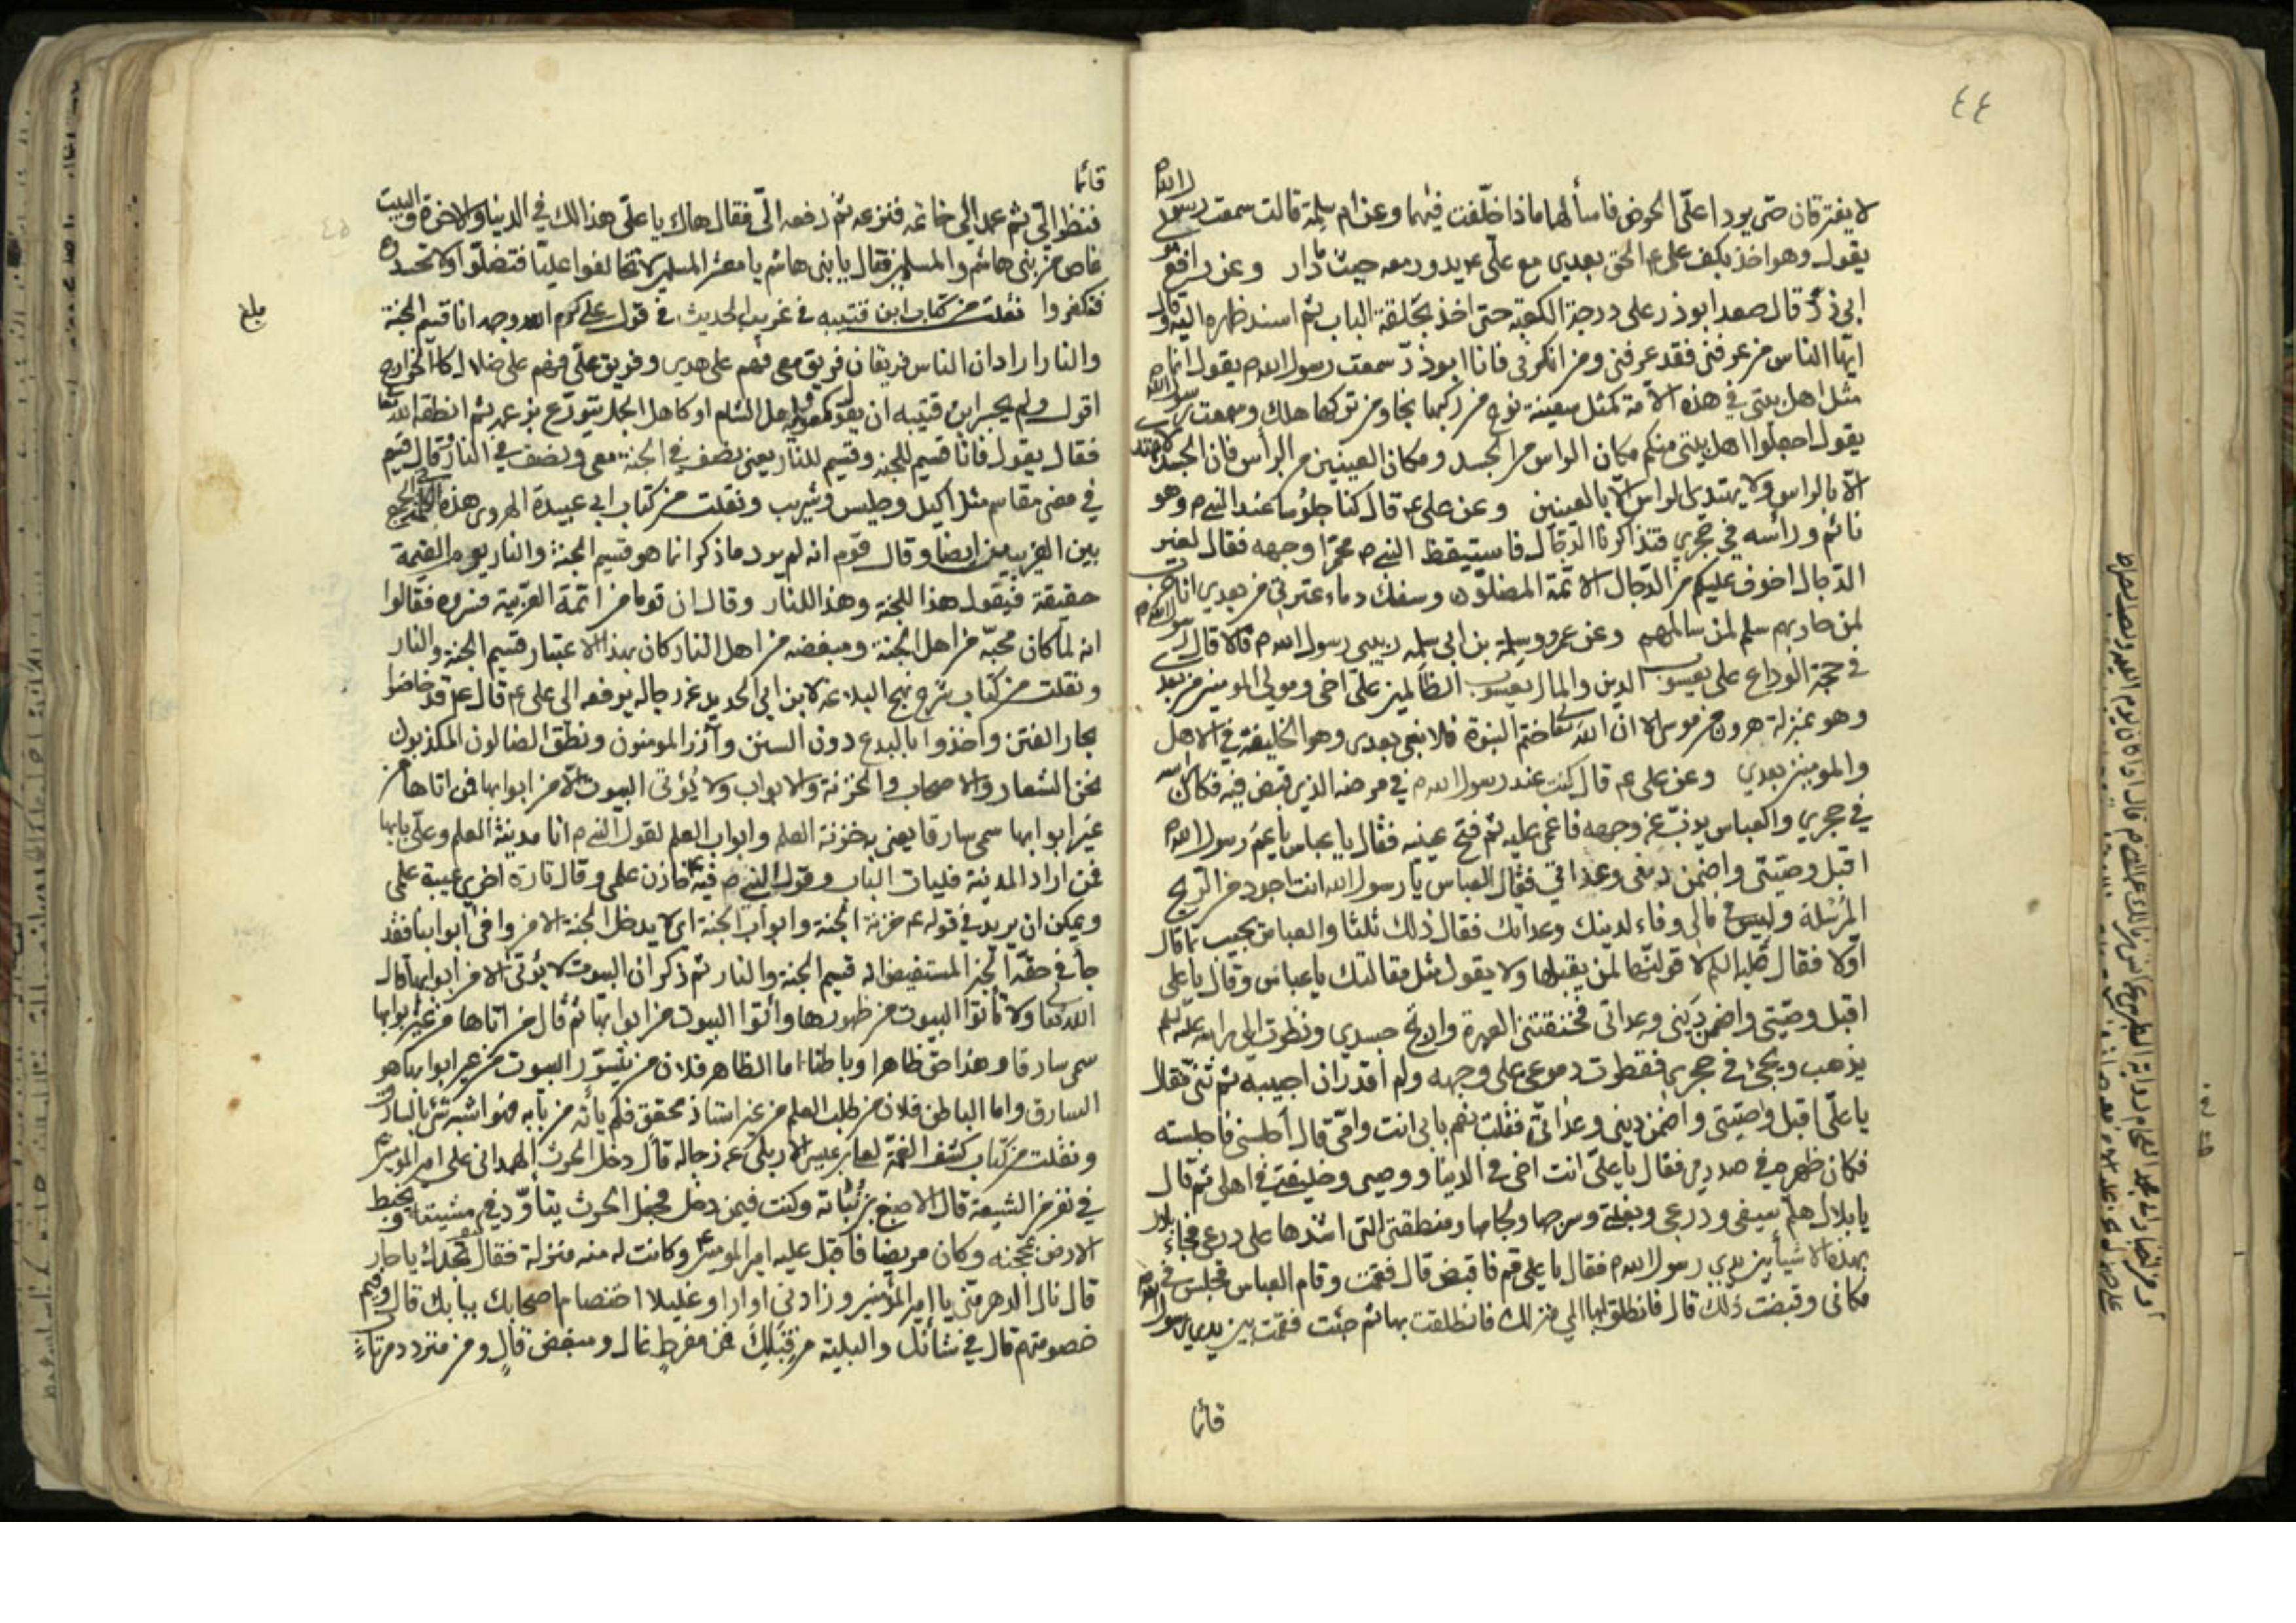 ٤٤
لا يفترقان حتى يردا على الحوض فاسألهما ماذا خلّفت فيهما وعن ام سلمة قالت سمعت رسول الله ص
يقول وهو اخذ بكف علي ع الحق بعدي مع علي ع يدور معه حيث دار وعن رافع مولى
ابي ذرّ قال صعد ابو ذر على درجة الكعبة حتى اخذ بحلقة الباب ثم اسند ظهره اليه وقال
ايّها الناس من عرفني فقد عرفني ومن انكرني فانا ابو ذرّ سمعت رسول الله ص يقول انما
مثل اهل بيتي في هذه الامة كمثل سفينة نوح من ركبها نجا ومن تركها هلك وسمعت رسول الله ص
يقول اجعلوا اهل بيتي منكم مكان الراس من الجسد ومكان العينين من الرأس فان الجسد لا يهتدي
الّا بالراس ولا يهتدي الراس الّا بالعينين وعن علي ع قال كنا جلوسا عند النبي ص وهو
نائم ورأسه في حجري فتذاكرنا الدجّال فاستيقظ النبي ص محمّرا وجهه فقال لغير
الدّجال اخوف عليكم من الدّجال الائمة المضلّون وسفك دماء عترتي من بعدي انا حرب
لمن حاربهم سلم لمن سالمهم وعن عمر وسلمة بن ابي سلمه ربيبي رسول الله ص قالا قال رسول الله ص
في حجة الوداع علي يعسوب الدين والمال يعسوب الظالمين علي اخي ومولى المومنين من بعدي
وهو بمنزلة هرون من موسى الا ان الله تعالى ختم النبوة فلا نبي بعدي وهو الخليفة في الاهل
والمومنين بعدي وعن علي ع قال كنت عند رسول الله ص في مرضه الذي قبض فيه فكان راسه
في حجري والعباس يذبّ عن وجهه فاغمي عليه ثم فتح عينيه فقال يا عباس يا عمّ رسول الله ص
اقبل وصيّتي واضمن ديني وعداتي فقال العباس يا رسول الله انت اجود من الريح
المرسلة وليس في مالي وفاء لدينك وعداتك فقال ذلك ثلثا والعباس يجيب بما قال
اوّلا فقال عليه السلام لاقولنّها لمن يقبلها ولا يقول مثل مقالتك يا عباس وقال يا علي
اقبل وصيّتي واضمن ديني وعداتي فخنقتني العبرة وارتج جسدي ونظرت الى راسه
يذهب ويجيء في حجري فقطرت دموعي على وجهه ولم اقدر ان اجيبه ثم ثنّى فقال
يا علّي اقبل وصيّتي واضمن ديني وعداتي فقلت نعم بابي انت وامّي قال اجلسني فاجلسته
فكان ظهره في صدري فقال يا علّي انت اخي في الدنيا ووصيي وخليفتي في اهلي ثم قال
يا بلال هلمّ سيفي ودرعي وبغلتي وسرجها ولجامها ومنطقتي التي اشدها على درعي فجاء بلال
بهذه الاشياء بين يدي رسول الله ص فقال يا علي قم فاقبض قال فقمت وقام العباس فجلس في
مكاني وقبضت ذلك قال فانطلق بها الى منزلك فانطلقت بها ثم جئت فقمت بين يدي رسول الله ص
قائما
قائما
فنظر اليّ ثم عمد الى خاتمه فنزعه ثم دفعه الّي فقال هاك يا علّي هذا لك في الدنيا والاخرة والبيت
غاص من بني هاشم والمسلمين فقال يا بني هاشم يا معشر المسلمين لا تخالفوا عليّا فتضلّوا ولا تحسدوه
فتكفروا نقلت من كتاب ابن قتيبه في غريب الحديث في قول علي كرم الله وجهه انا قسيم الجنة
والنار اراد ان الناس فريقان فريق معي فهم على هدى وفريق علّي فهم على ضلال كالخوارج
اقول ولم يجسر ابن قتيبه ان يقول كمعويه واهل الشام او كاهل الجمل يتورّع بزعمه ثم انطقه الله تعالى
فقال يقول فانا قسيم للجنه وقسيم للنار يعني نصف في الجنة معي ونصف في النار وقال قسيم
في معنى مقاسم مثل اكيل وجليس وشريب ونقلت من كتاب ابي عبيدة الهروي هذه الكلمة في الجمع
بين الغريبين ايضا وقال قوم انه لم يرد ما ذكر انما هو قسيم الجنة والنار يوم القيمة
حقيقة فيقول هذا للجنة وهذا للنار وقال ان قوما من ائمة العربية فسروه فقالوا
انه لما كان محبّه من اهل الجنة ومبغضه من اهل النار كان بهذا الاعتبار قسيم الجنة والنار
ونقلت من كتاب شرح نهج البلاغة لابن ابي الحديد عن رجاله يرفعه الى علي ع قال ع قد خاضوا
بحار الفتن واخذوا بالبدع دون السنن وآزر المومنون ونطق الضالون المكذبون
نحن الشعار والاصحاب والخزنة والابواب ولا يؤتى البيوت الّا من ابوابها فمن اتاها من
غير ابوابها سمي سارقا يعني به خزنة العلم وابواب العلم لقول النبي ص انا مدينة العلم وعلّي بابها
فمن اراد المدينة فليات الباب وقول النبي ص فيه خازن علمي وقال تارة اخرى عيبة علمي
ويمكن ان يريد في قوله ع خزنة الجنة وابواب الجنة اي لا يدخل الجنة الا من وافى ابوابنا فقد
جاء في حقّه الخبر المستفيض انه قسيم الجنة والنار ثم ذكر ان البيوت لا يؤتى الا من ابوابها قال
الله تعالى ولا تأتوا البيوت من ظهورها وأتوا البيوت من ابوابها ثم قال من اتاها من غير ابوابها
سمي سارقا وهذا حق ظاهرا وباطنا اما الظاهر فلان من يتسوّر البيوت من غير ابوابها هو
السارق واما الباطن فلان من طلب العلم من غير استاذ محقق فلم يأته من بابه فهو اشبه شئ بالسارق
ونقلت من كتاب كشف الغمّة لعلي بن عيسى الاربلي عن رجاله قال دخل الحرث الهمداني على امير المومنين ع
في نفر من الشيعة قال الاصبغ بن نباتة وكنت فيمن دخل فجعل الحرث يتأوّد في مشيته ويخبط
الارض بمحجنه وكان مريضا فاقبل عليه امير المومنين ع وكانت له منه منزلة فقال كيف نجدك يا حار
قال نال الدهر منّي يا امير المؤمنين وزادني اوارا وغليلا اختصام اصحابك ببابك قال وفيم
خصومتهم قال في شانك والبلية من قبلك فمن مفرط غال ومبغض قال ومن متردد مرتاب
بلغ